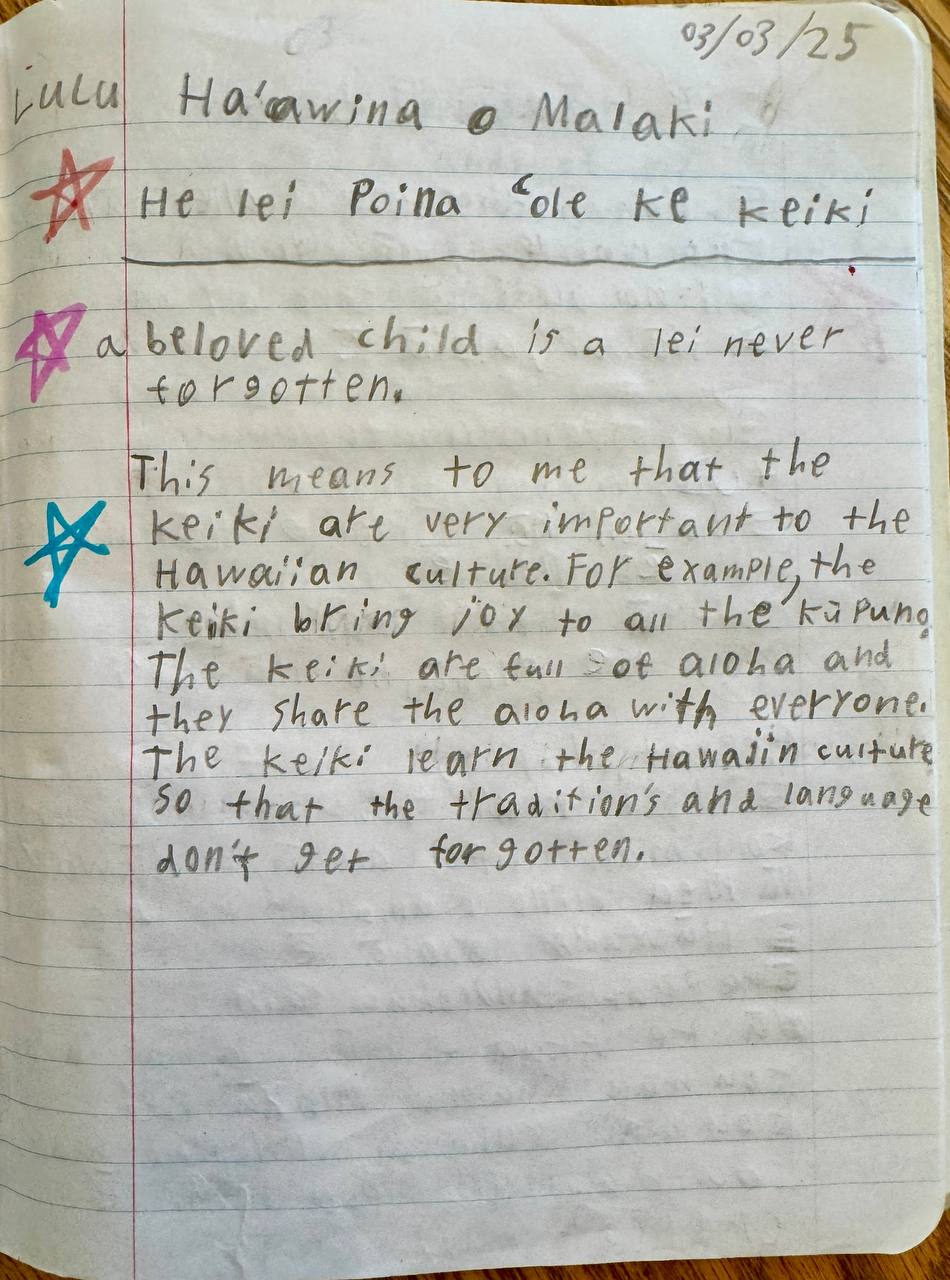 03/03/25
Lulu Ha'awina o Malaki
He lei Poina ʻole ke keiki
a beloved child is a lei never
forgotten.
This means to me that the
keiki are very important to the
Hawaiian culture. For example, the
keiki bring joy to all the kūpuna.
The keiki are full of aloha and
they share the aloha with everyone.
The keiki learn the Hawaiin culture
so that the tradition's and language
don't get forgotten.